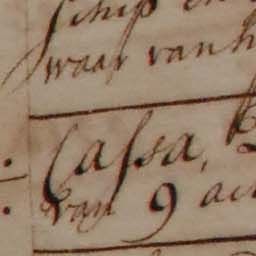 schip en
waar van h
Cassa,
van 9 act